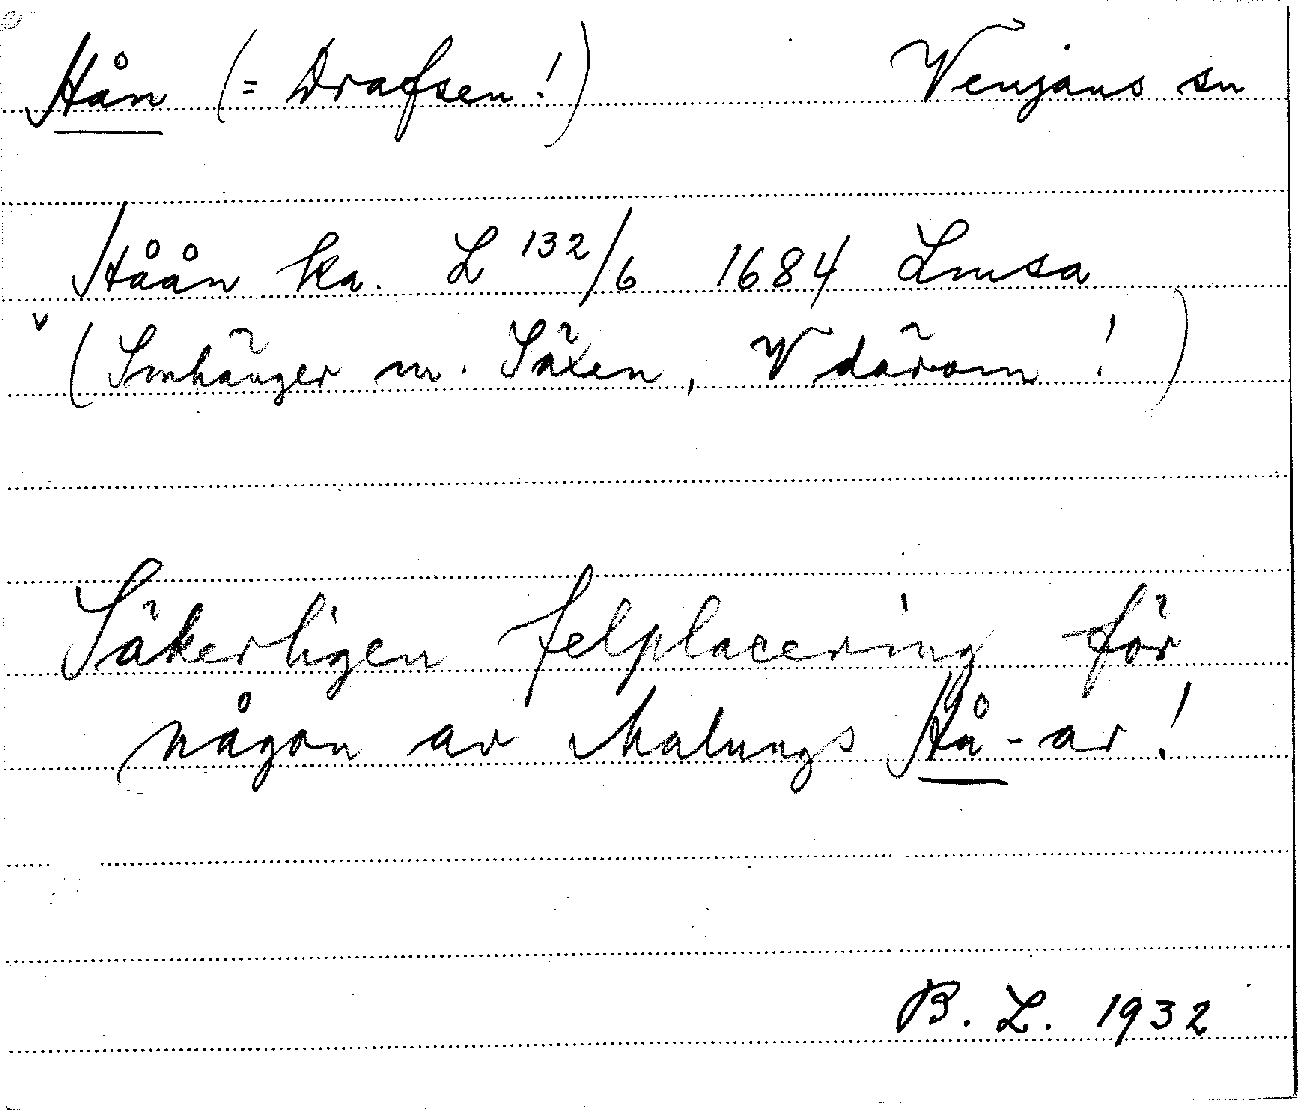 Hån (= Drafsen!) Venjans sn
Håån ka. L 132/6 1684 Lmsa
v (Smhänger m. Säxen, V därom!)
Säkerligen felplacering för
någon av Malungs Hå-ar!
B. L. 1932